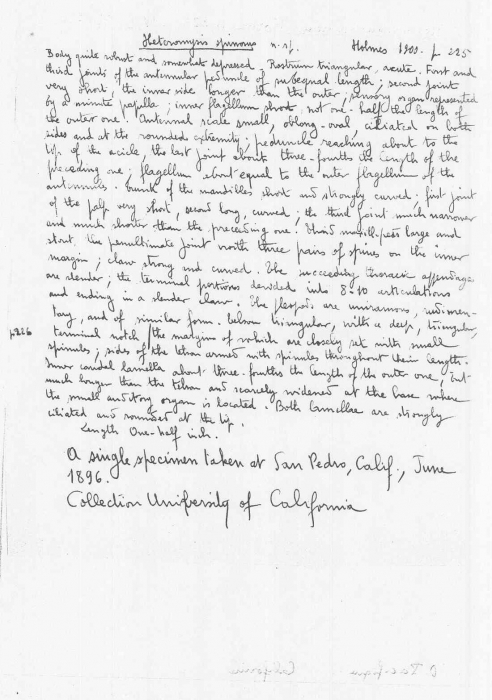 Heteromysis spinosus n. sp. Holmes 1900. p. 225
Body quite robust and somewhat depressed. Rostrum triangular, acute. First and
third joints of the antennular peduncle of subequal length; second joint
very short, the inner side longer than the outer; sensory organ represented
by a minute papilla; inner flagellum short not one-half the length of
the outer one. Antennal scale small, oblong-oval, ciliated on both
sides and at the rounded extremity. peduncle reaching about to the
tip of the acicle, the last joint about three-fourths the length of the
preceding one; flagellum about equal to the outer flagellum of the
antennules. Trunk of the mandibles short and strongly curved; first joint
of the palp very short, second long, curved; the third joint much narrower
and much shorter than the preceding one. Third maxillipeds large and
stout, the penultimate joint with three pairs of spines on the inner
margin; claw strong and curved. The succeeding thoracic appendages
are slender; the terminal portions divided into 8-10 articulations
and ending in a slender claw. The pleopods are uniramous, rudimen-
tary, and of similar form. telson triangular, with a deep, triangular,
p.226 terminal notch / the margins of which are closely set with small
spinules; sides of the telson armed with spinules throughout their length.
Inner caudal lamella about three-fourths the length of the outer one, but
much longer than the telson and scarcely widened at the base where
the small auditory organ is located. Both lamellae are strongly
ciliated and rounded at the tip.
Length One-half inch.
A single specimen taken at San Pedro, Calif., June
1896.
Collection University of California